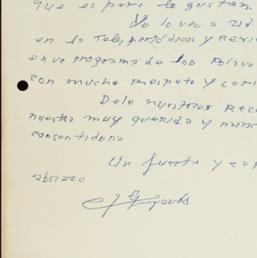 que es pero te gustan
Yo lo veo a Ud
en la Tele, periódicos y Revis
en un programa de los
con mucho respeto y cari
Dele nuestros Rec
nuestra muy querida y nun
consentidora
Un fuerte y ca
abrazo